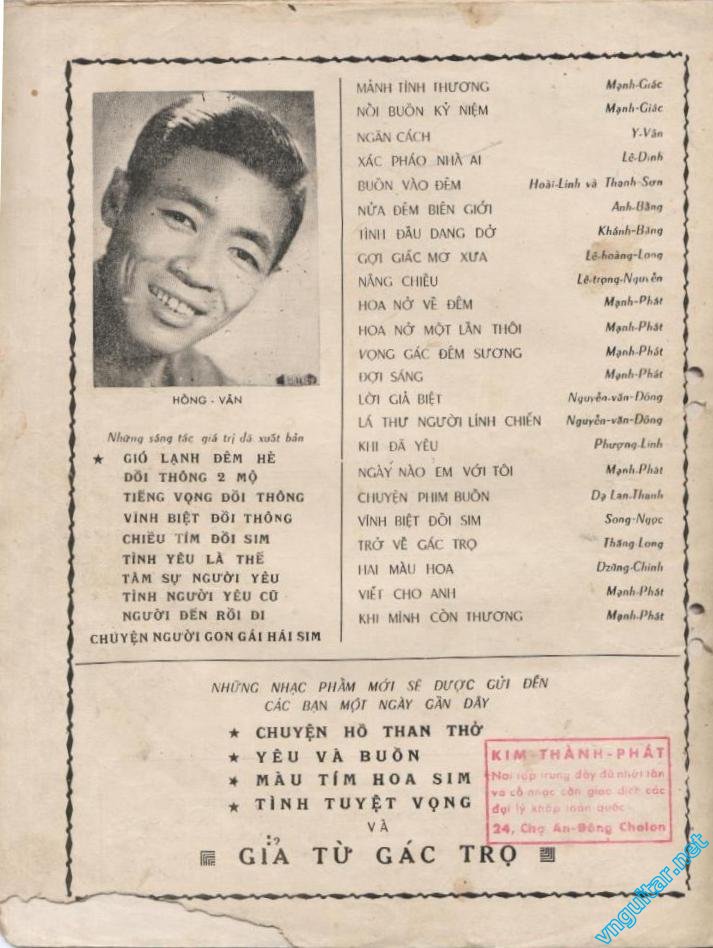 HỒNG - VÂN
Những sáng tác giá trị đã xuất bản
★ GIÓ LẠNH ĐÊM HÈ
ĐỒI THÔNG 2 MỘ
TIẾNG VỌNG ĐỒI THÔNG
VĨNH BIỆT ĐỒI THÔNG
CHIỀU TÍM ĐỒI SIM
TÌNH YÊU LÀ THẾ
TÂM SỰ NGƯỜI YÊU
TÌNH NGƯỜI YÊU CŨ
NGƯỜI ĐẾN RỒI ĐI
CHUYỆN NGƯỜI CON GÁI HÁI SIM
MẢNH TÌNH THƯƠNG Mạnh-Giác
NỖI BUỒN KỶ NIỆM Mạnh-Giác
NGĂN CÁCH Y-Vân
XÁC PHÁO NHÀ AI Lê-Dinh
BUỒN VÀO ĐÊM Hoài-Linh và Thanh-Sơn
NỬA ĐÊM BIÊN GIỚI Anh-Bằng
TÌNH ĐẦU DANG DỞ Khánh-Băng
GỢI GIẤC MƠ XƯA Lê-hoàng-Long
NẮNG CHIỀU Lê-trọng-Nguyễn
HOA NỞ VỀ ĐÊM Mạnh-Phát
HOA NỞ MỘT LẦN THÔI Mạnh-Phát
VỌNG GÁC ĐÊM SƯƠNG Mạnh-Phát
ĐỢI SÁNG Mạnh-Phát
LỜI GIÃ BIỆT Nguyễn-văn-Đông
LÁ THƯ NGƯỜI LÍNH CHIẾN Nguyễn-văn-Đông
KHI ĐÃ YÊU Phượng-Linh
NGÀY NÀO EM VỚI TÔI Mạnh-Phát
CHUYỆN PHIM BUỒN Dạ Lan-Thanh
VĨNH BIỆT ĐỒI SIM Song-Ngọc
TRỞ VỀ GÁC TRỌ Thăng-Long
HAI MÀU HOA Dzũng-Chinh
VIẾT CHO ANH Mạnh-Phát
KHI MÌNH CÒN THƯƠNG Mạnh-Phát
NHỮNG NHẠC PHẨM MỚI SẼ ĐƯỢC GỬI ĐẾN
CÁC BẠN MỘT NGÀY GẦN ĐÂY
★ CHUYỆN HỒ THAN THỞ
★ YÊU VÀ BUỒN
★ MÀU TÍM HOA SIM
★ TÌNH TUYỆT VỌNG
VÀ
GIẢ TỪ GÁC TRỌ
KIM-THÀNH-PHÁT
Nơi tập trung đầy đủ nhứt tân
và cổ nhạc cần giao dịch các
đại lý khắp toàn quốc
24, Chợ An-Đông Cholon
vnguitar.net